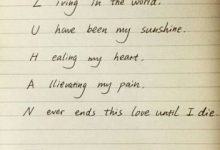 L iving in the world.
U have been my sunshine.
H ealing my heart.
A llievating my pain.
N ever ends this love until I die.